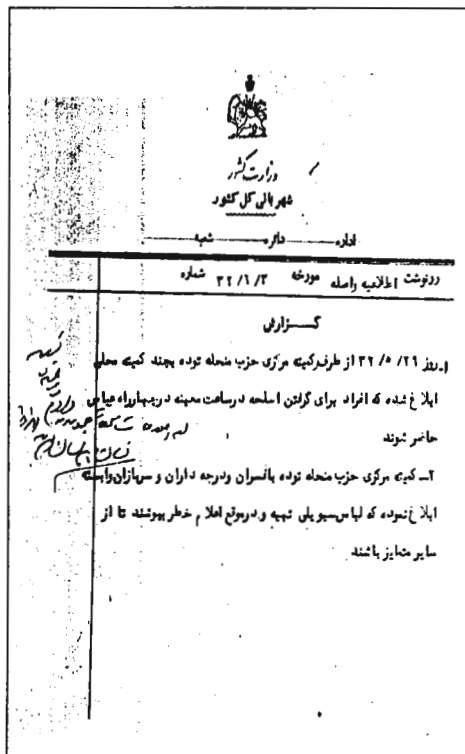 وزارت کشور
شهربانی کل کشور
اداره دائره شعبه
رونوشت اطلاعیه واصله مورخه ۳۲/۶/۳ شماره
گـــزارش
۱ـ روز ۳۲/۵/۲۹ از طرف کمیته مرکزی حزب منحله توده بچند کمیته محلی
ابلاغ شده که افراد برای گرفتن اسلحه در ساعت معینه در چهارراه عباسی
حاضر شوند
۲ـ کمیته مرکزی حزب منحله توده بافسران و درجه داران و سربازان وابسته
ابلاغ نموده که لباس سیویلی تهیه و در موقع اعلام خطر بپوشند تا از
سایر متمایز باشند